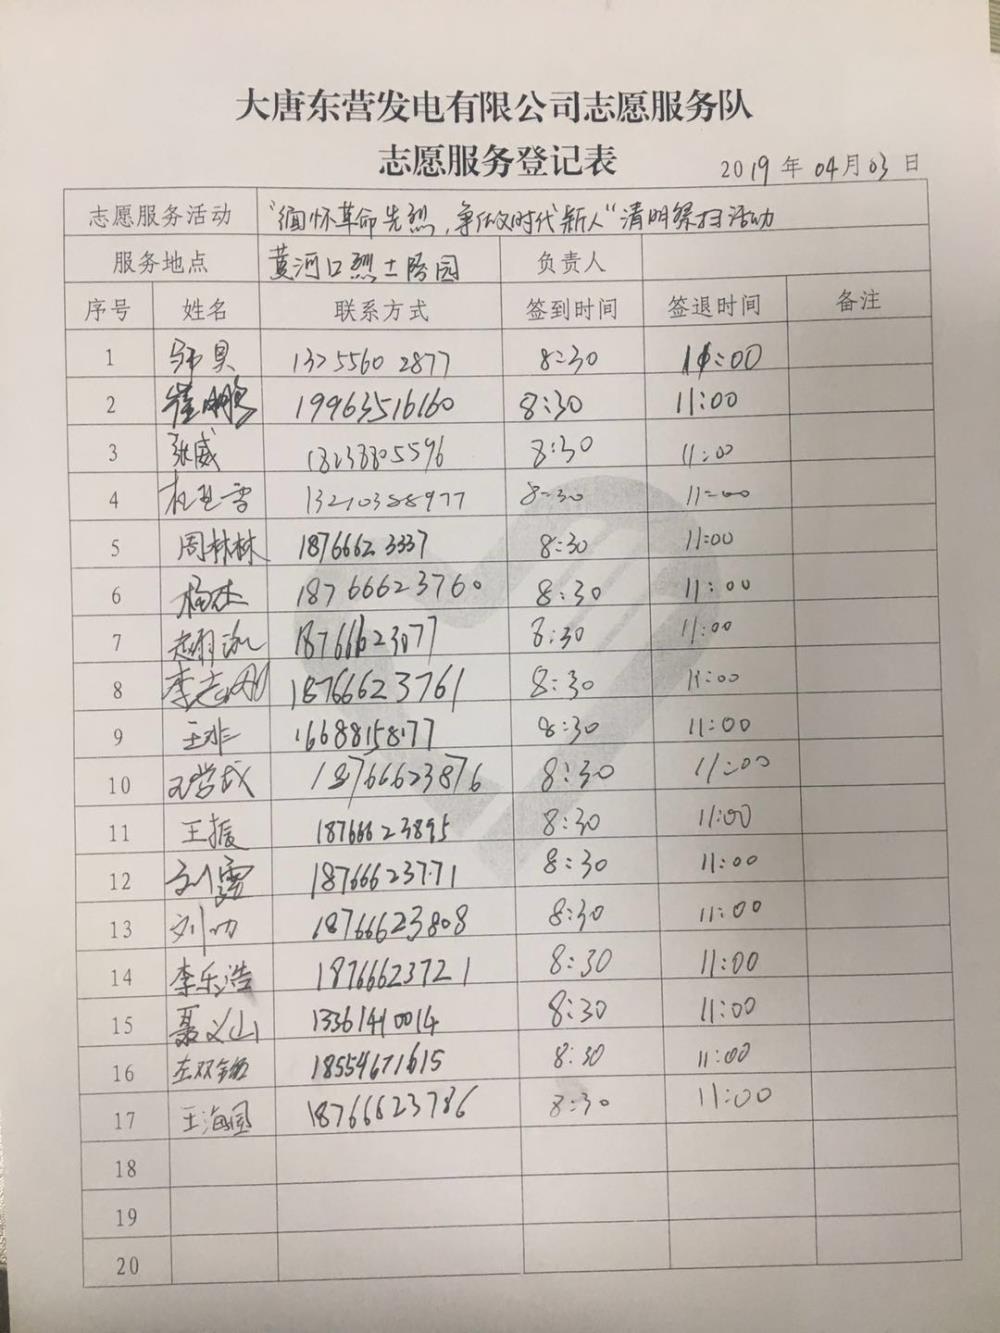 大唐东营发电有限公司志愿服务队
志愿服务登记表
2019年04月03日
志愿服务活动 "缅怀革命先烈,争做时代新人"清明祭扫活动
服务地点 黄河口烈士陵园 负责人
序号 姓名 联系方式 签到时间 签退时间 备注
1 8:30 11:00
2 崔鹏 19963516160 8:30 11:00
3 张威 18238805596 8:30 11:00
4 13210388977 8:30 11:00
5 周林林 18766623337 8:30 11:00
6 杨杰 18766623760 8:30 11:00
7 18766623077 8:30 11:00
8 李志刚 18766623761 8:30 11:00
9 王非 16688158177 8:30 11:00
10 18766623876 8:30 11:00
11 王振 18766623895 8:30 11:00
12 刘霞 18766623771 8:30 11:00
13 刘功 18766623808 8:30 11:00
14 李乐浩 18766623721 8:30 11:00
15 聂义山 13361410014 8:30 11:00
16 18554671615 8:30 11:00
17 王海国 18766623786 8:30 11:00
18
19
20